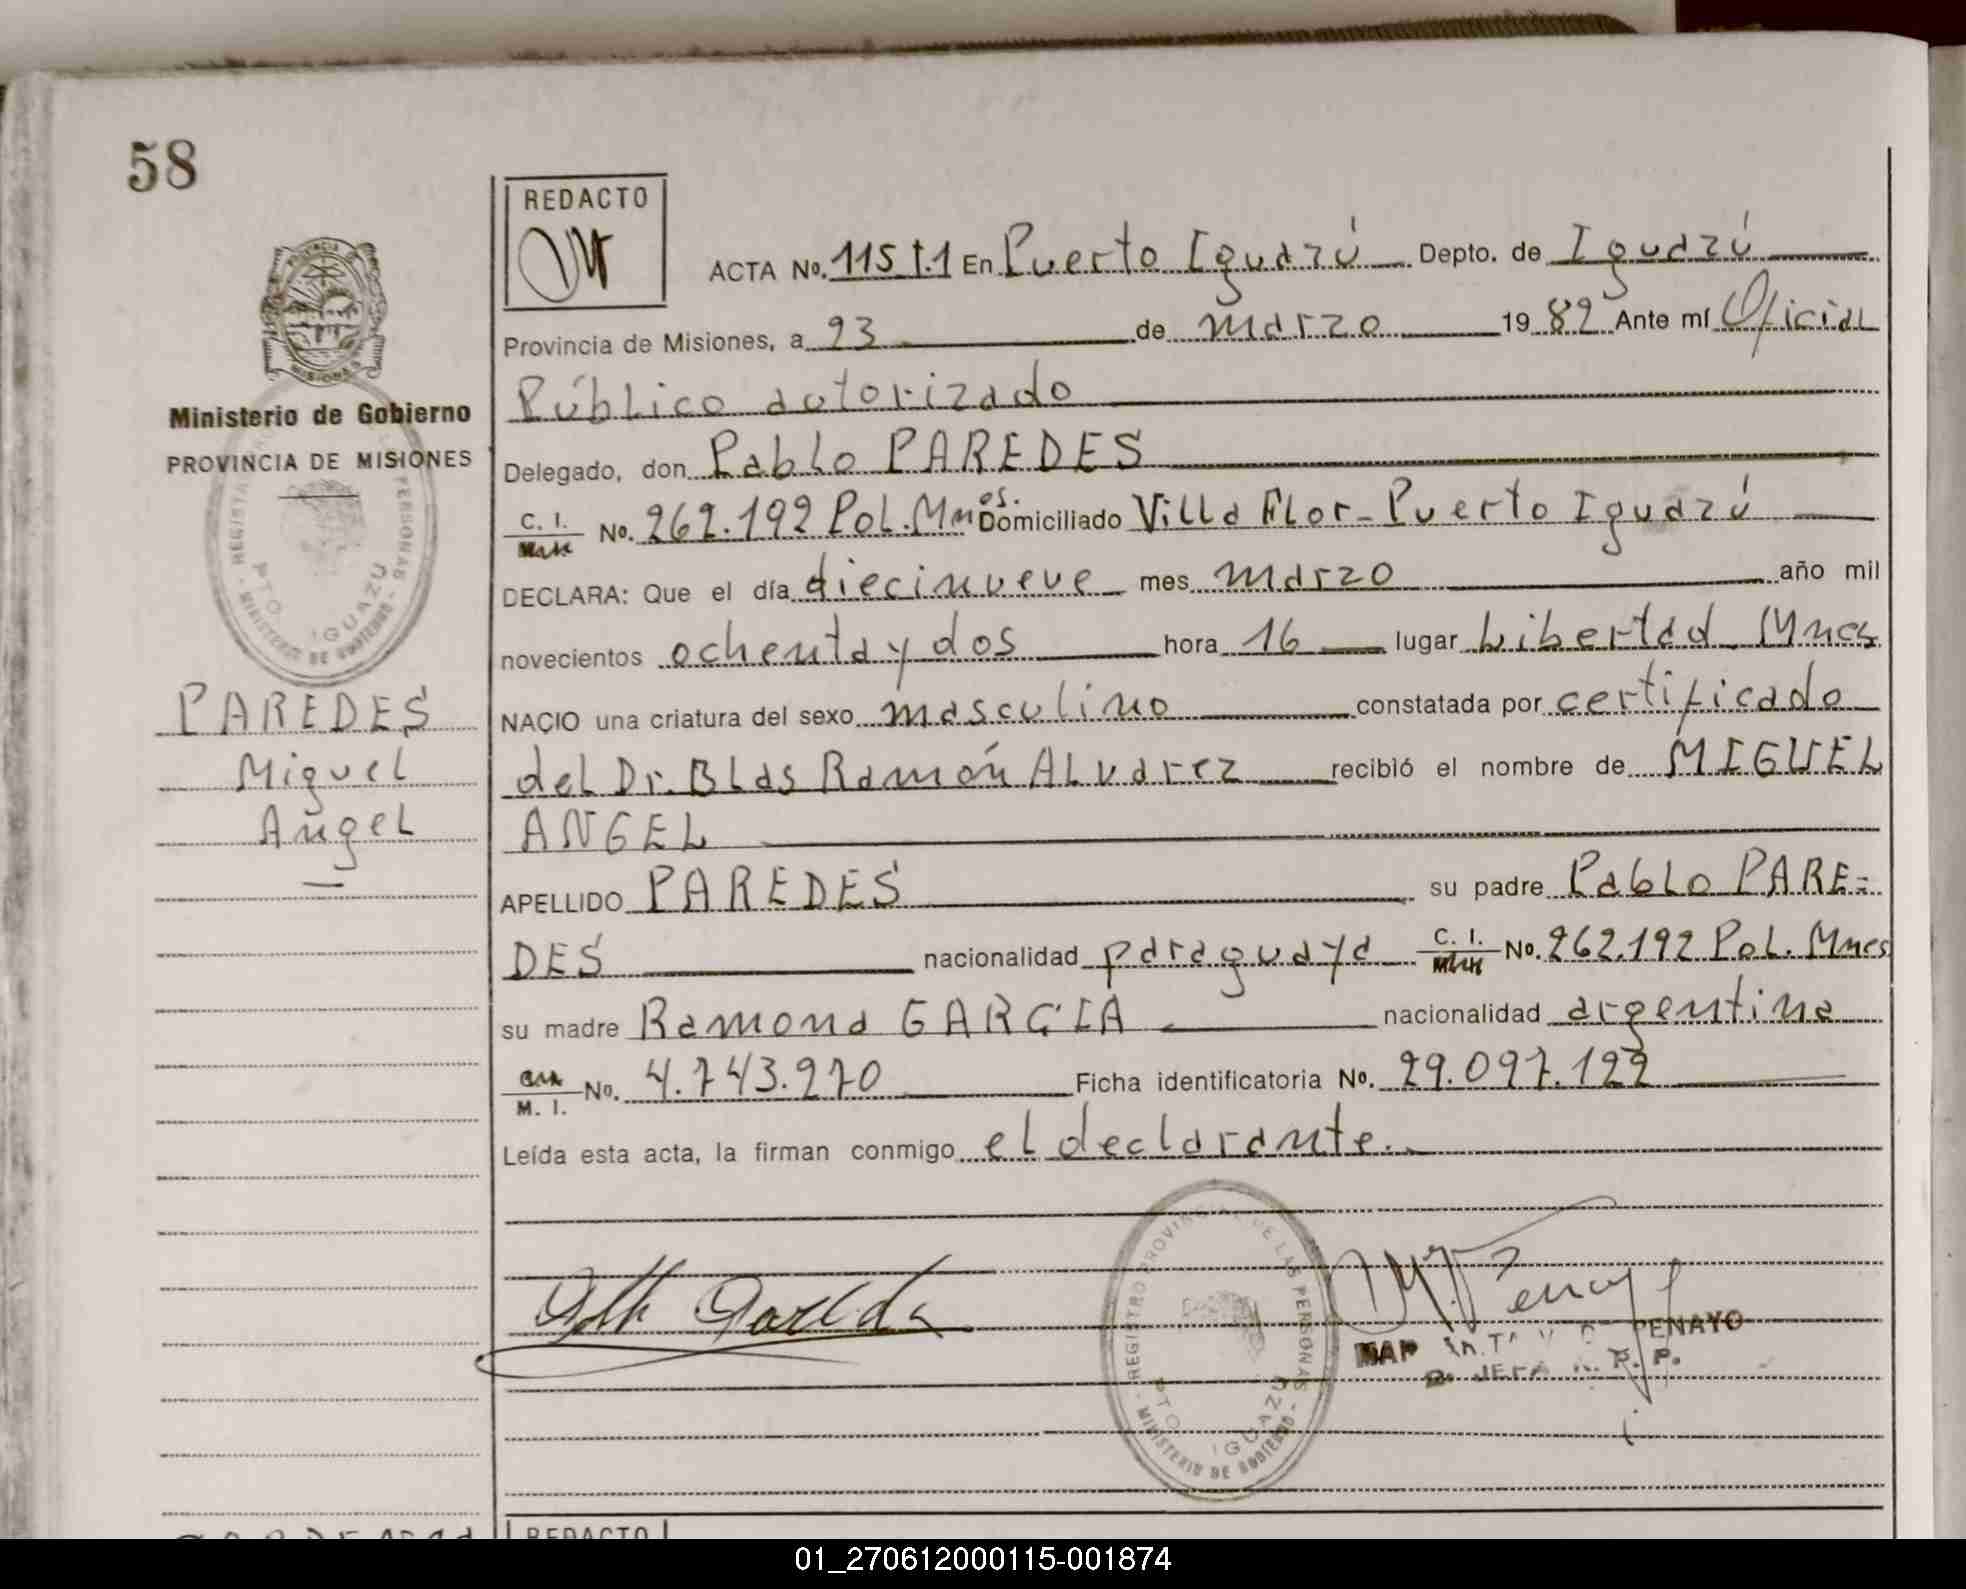 58
REDACTO
ACTA No. 115 T.1 En Puerto Iguazú Depto. de Iguazú
Provincia de Misiones, a 23 de marzo 19 82 Ante mí Oficial
Público autorizado
Ministerio de Gobierno
PROVINCIA DE MISIONES
Delegado, don Pablo PAREDES
C. I. No. 262.192 Pol. Mnes. Domiciliado Villa Flor - Puerto Iguazú
DECLARA: Que el día diecinueve mes marzo año mil
novecientos ochenta y dos hora 16 lugar Libertad Mnes
PAREDES
Miguel
Angel
NACIO una criatura del sexo masculino constatada por certificado
del Dr. Blas Ramón Alvarez recibió el nombre de MIGUEL
ANGEL
APELLIDO PAREDES su padre Pablo PARE=
DES nacionalidad paraguaya C. I. No. 262.192 Pol. Mnes
su madre Ramona GARCIA nacionalidad argentina
M. I. No. 4.743.270 Ficha identificatoria No. 29.097.122
Leída esta acta, la firman conmigo el declarante.
REGISTRO PROVINCIAL DE LAS PERSONAS
PTO IGUAZU
- MINISTERIO DE GOBIERNO -
PENAYO
R. P.
REDACTO
01_270612000115-001874